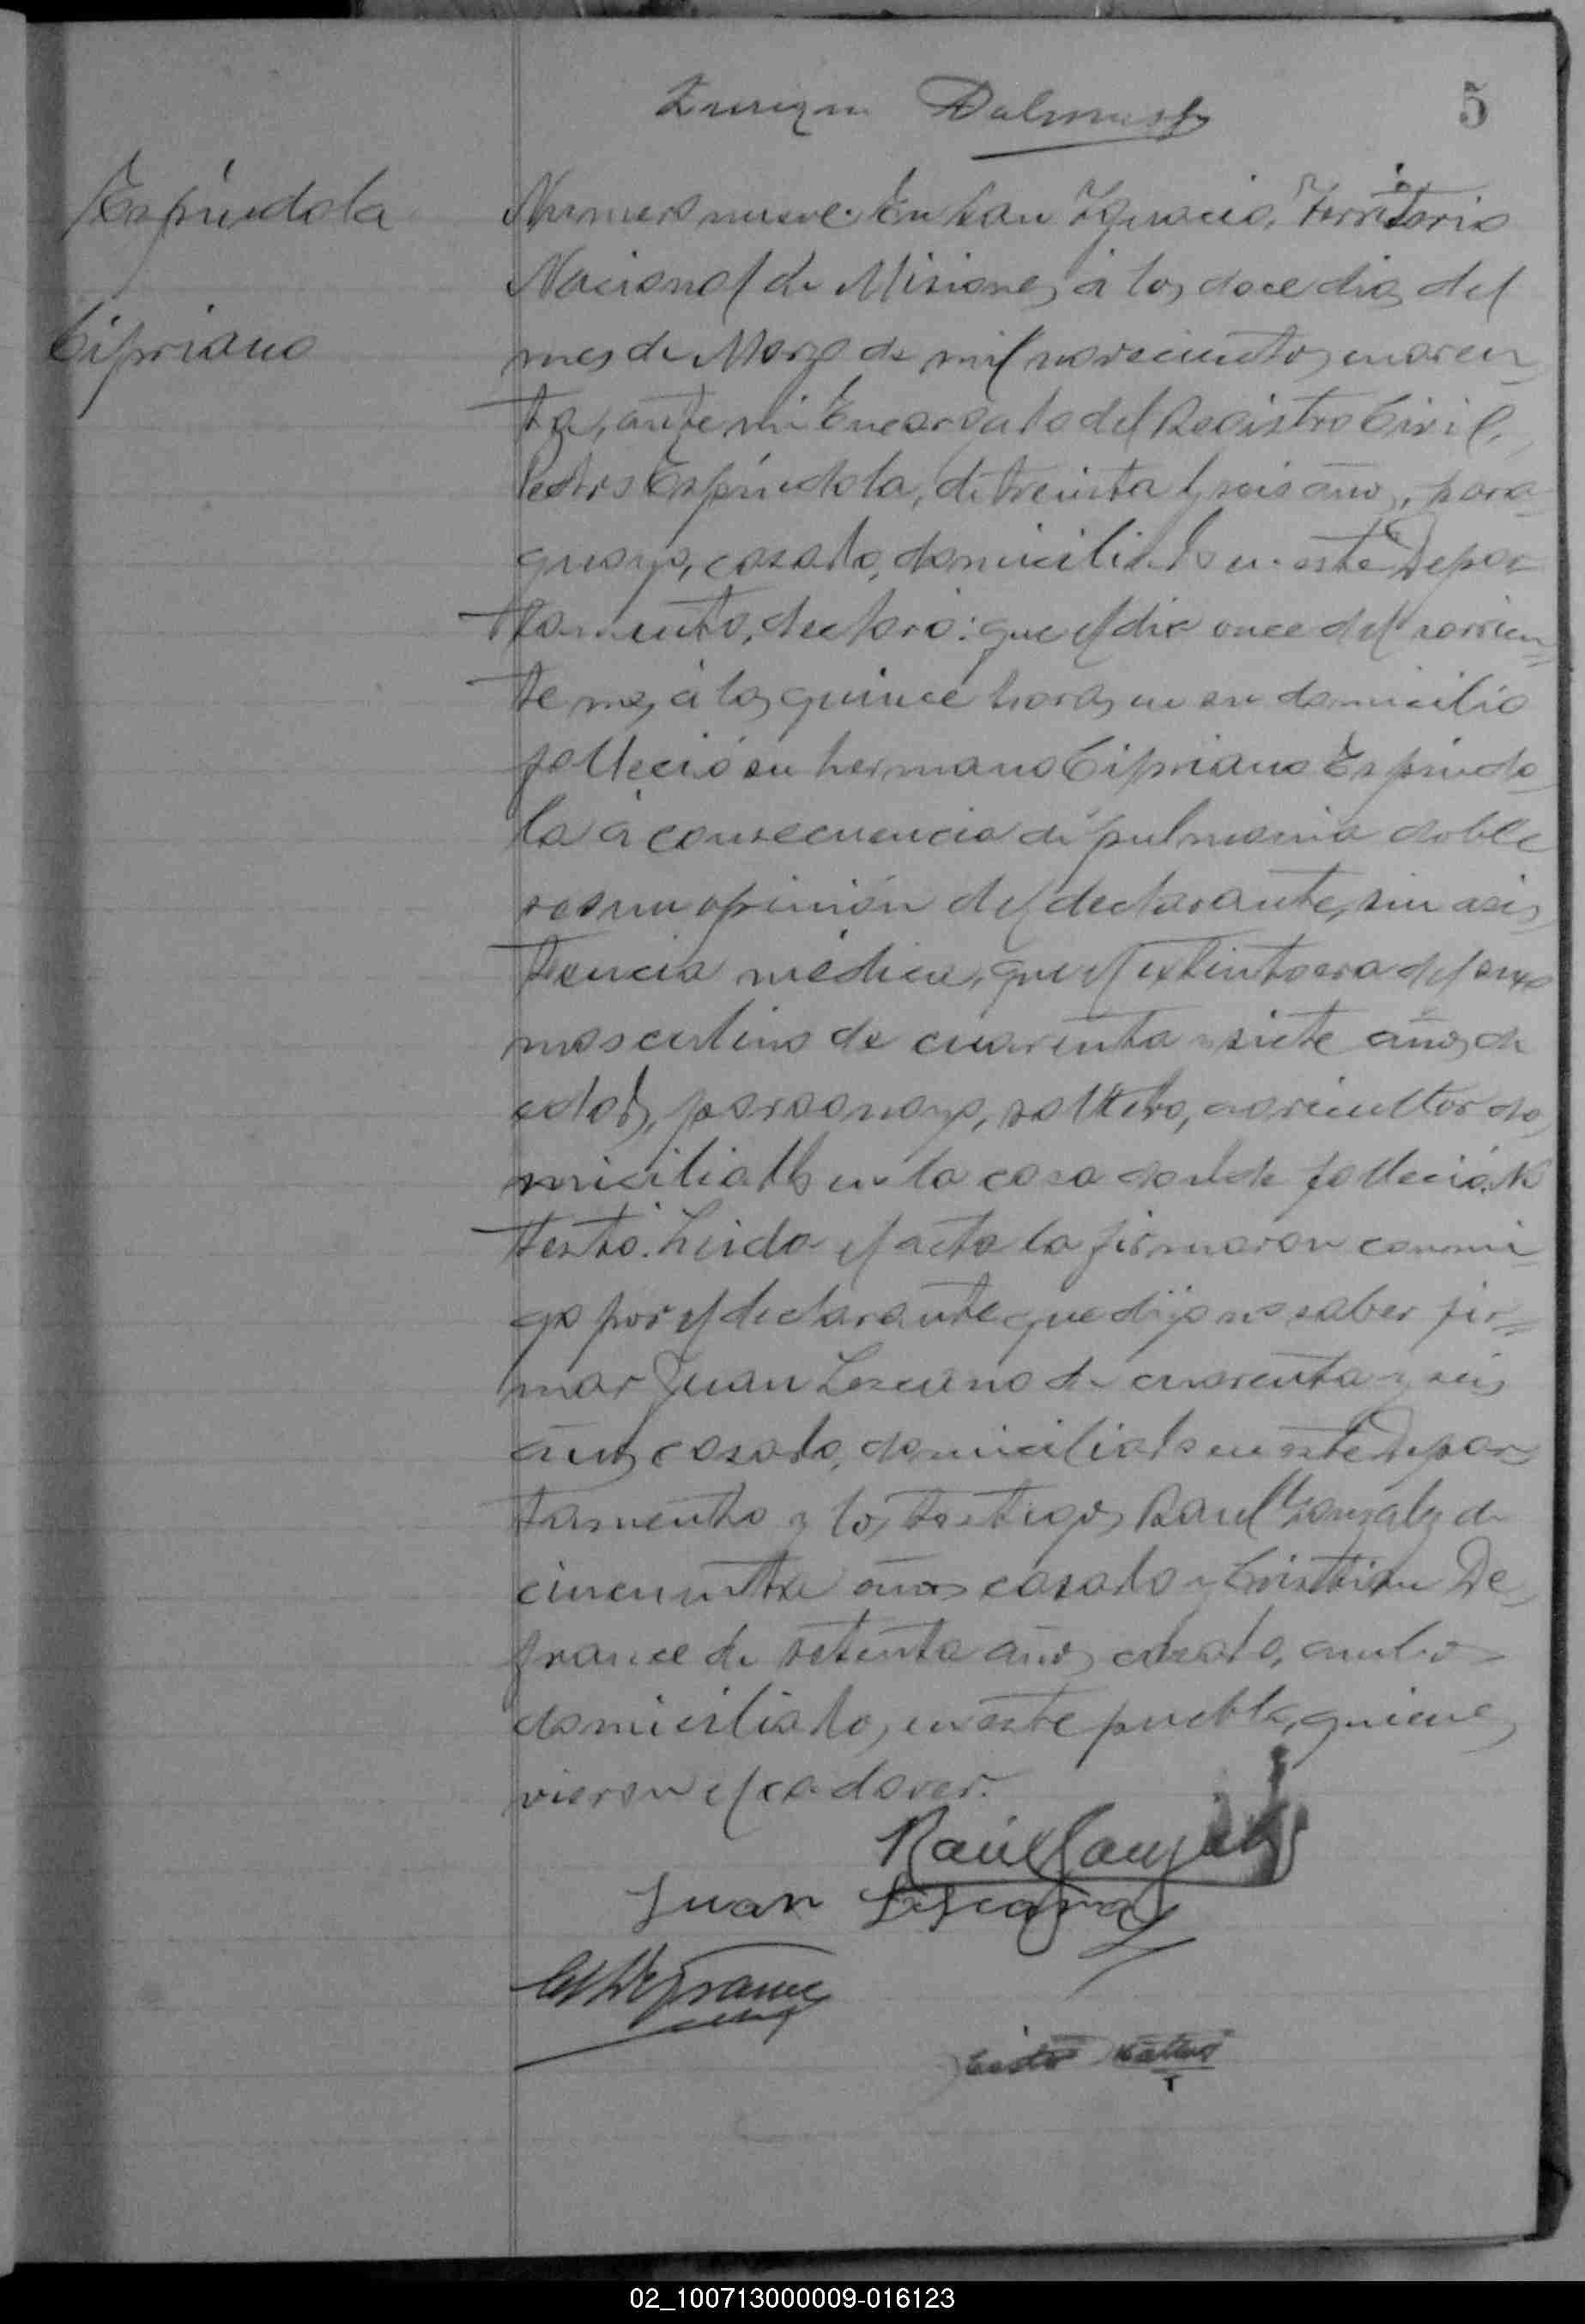 5
Espíndola
Cipriano
Numero nueve. En San Ignacio, Territorio
Nacional de Misiones, á los doce dias del
mes de Marzo de mil novecientos cuaren-
ta, ante mi Encargado del Registro Civil,
Pedro Espíndola, de treinta y seis años, para-
guayo, casado, domiciliado en este Depar-
tamento, declaró: que el dia once del corrien-
te mes, á las quince horas, en su domicilio
falleció su hermano Cipriano Espíndo-
la á consecuencia de pulmonia doble
segun opinión del declarante, sin asis-
tencia médica, que el extinto era del sexo
masculino de cuarenta y siete años de
edad, paraguayo, soltero, agricultor do-
miciliado en la casa donde falleció. No
testó. Leida el acta la firmaron conmi-
go por el declarante que dijo no saber fir-
mar Juan Lezcano de cuarenta y seis
años casado, domiciliado en este Depar-
tamento y los testigos Raul Gonzalez de
cincuenta años casado y Cristian De-
france de setenta años casado, ambos
domiciliados en este pueblo, quienes
vieron el cadaver.
Raúl Gonzalez
Juan Lescano
Defrance
02_100713000009-016123